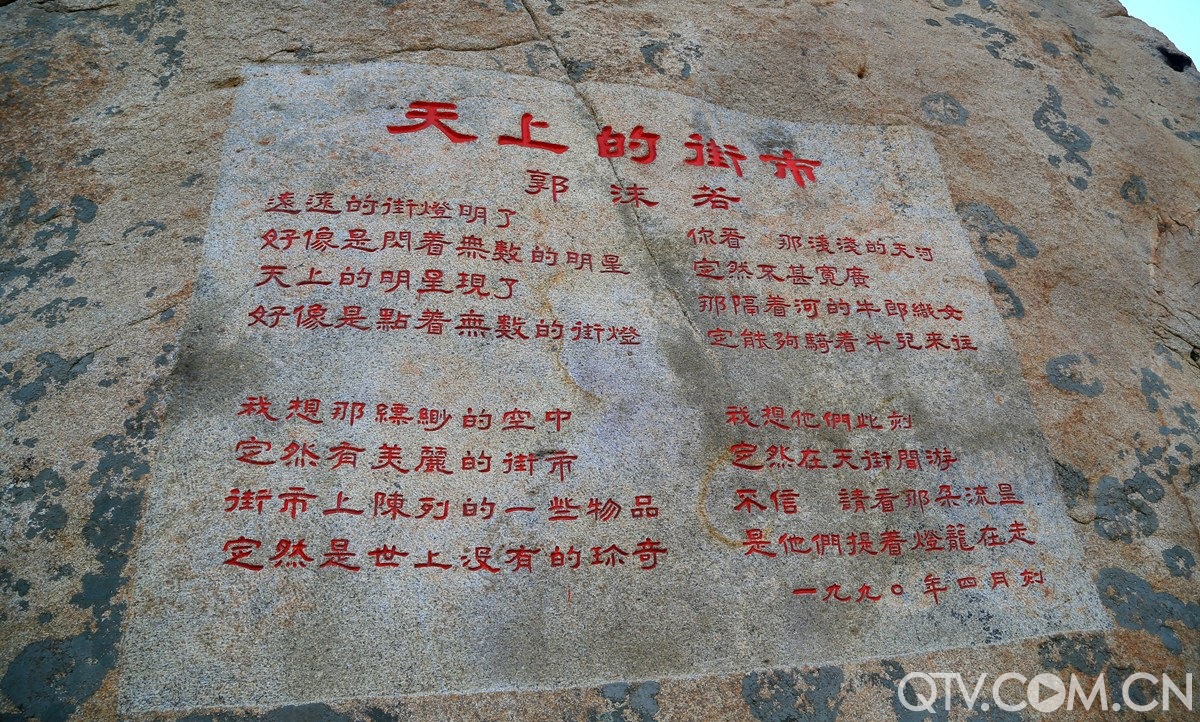 天上的街市
郭沫若
遠遠的街燈明了
好像是閃着無數的明星
天上的明星現了
好像是點着無數的街燈
我想那縹緲的空中
定然有美麗的街市
街市上陳列的一些物品
定然是世上沒有的珍奇
你看 那淺淺的天河
定然不甚寬廣
那隔着河的牛郎織女
定能夠騎着牛兒來往
我想他們此刻
定然在天街閒游
不信 請看那朵流星
是他們提着燈籠在走
一九九〇年四月刻
QTV.COM.CN